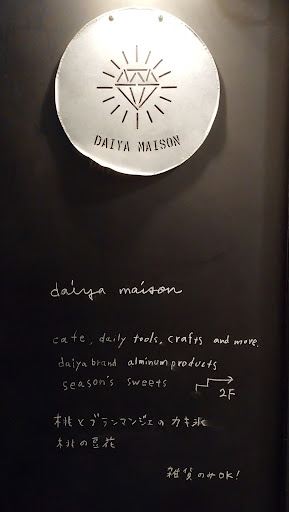 DAIYA MAISON
daiya maison
cafe, daily tools, crafts and more.
daiya brand alminum products
season's sweets
2F
桃とブランマンジェのカキ氷
桃の豆花
雑貨のみOK!